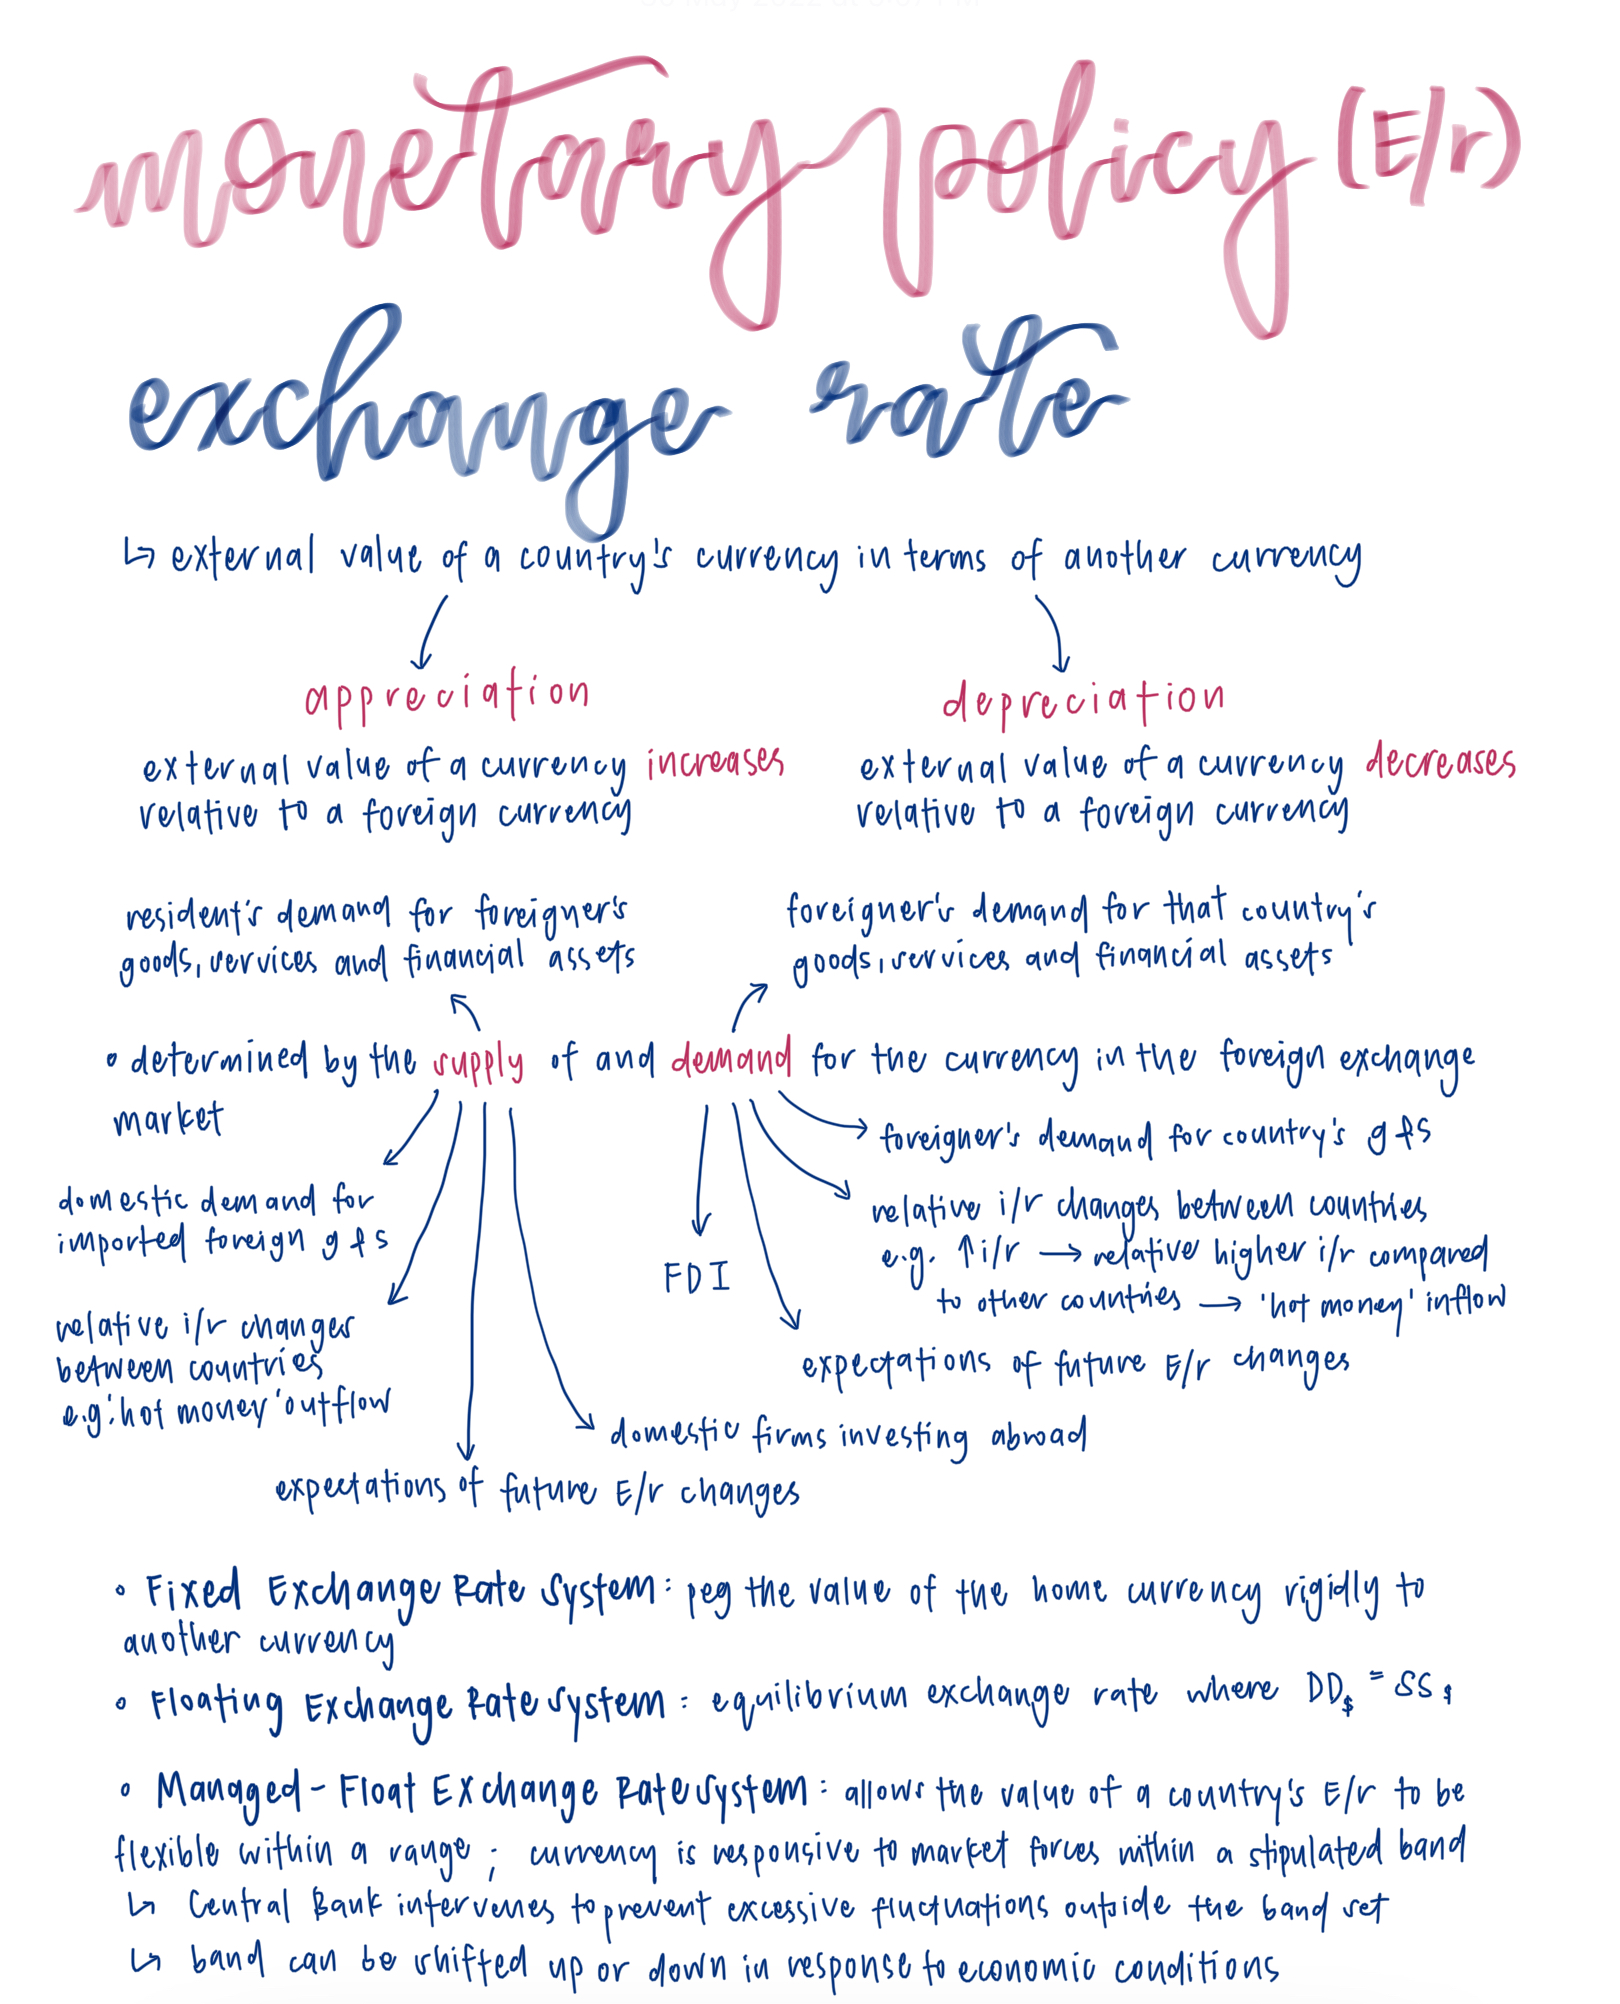 monetary policy (E/r)
exchange rate
↳ external value of a country's currency in terms of another currency
appreciation
external value of a currency increases
relative to a foreign currency
depreciation
external value of a currency decreases
relative to a foreign currency
resident's demand for foreigner's
goods, services and financial assets
foreigner's demand for that country's
goods, services and financial assets
• determined by the supply of and demand for the currency in the foreign exchange
market
domestic demand for
imported foreign g & s
relative i/r changes
between countries
e.g. 'hot money' outflow
expectations of future E/r changes
domestic firms investing abroad
FDI
expectations of future E/r changes
relative i/r changes between countries
e.g. ↑i/r → relative higher i/r compared
to other countries → 'hot money' inflow
foreigner's demand for country's g & s
• Fixed Exchange Rate System: peg the value of the home currency rigidly to
another currency
• Floating Exchange Rate System: equilibrium exchange rate where DD$ = SS$
• Managed-Float Exchange Rate System: allows the value of a country's E/r to be
flexible within a range; currency is responsive to market forces within a stipulated band
↳ Central Bank intervenes to prevent excessive fluctuations outside the band set
↳ band can be shifted up or down in response to economic conditions